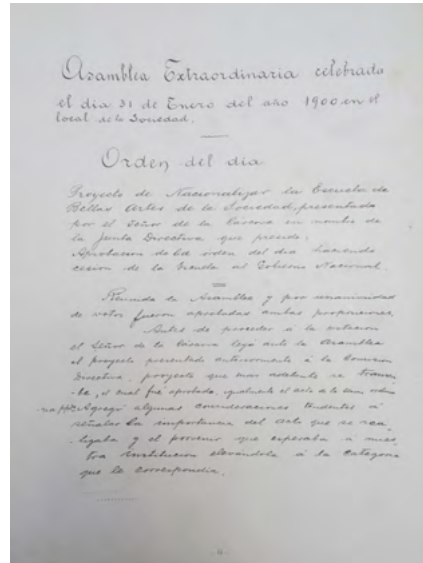 Asamblea Extraordinaria celebrada
el dia 31 de Enero del año 1900 en el
local de la Sociedad.
Orden del dia
Proyecto de Nacionalizar la Escuela de
Bellas Artes de la Sociedad, presentado
por el Señor de la Cárcova en nombre de
la Junta Directiva que preside.
Aprobacion de la orden del dia haciendo
cesion de la Escuela al Gobierno Nacional.
Reunida la Asamblea y por unanimidad
de votos fueron aprobadas ambas proposiciones.
Antes de proceder á la votacion
el Señor de la Cárcova leyó ante la Asamblea
el proyecto presentado anteriormente á la Comision
Directiva, proyecto que mas adelante se transcri
be, el cual fué aprobado, igualmente el acta
Agregó algunas consideraciones tendentes á
señalar la importancia del acto que se rea
lizaba y el porvenir que esperaba á nues
tra institucion elevándola á la categoria
que le correspondia.